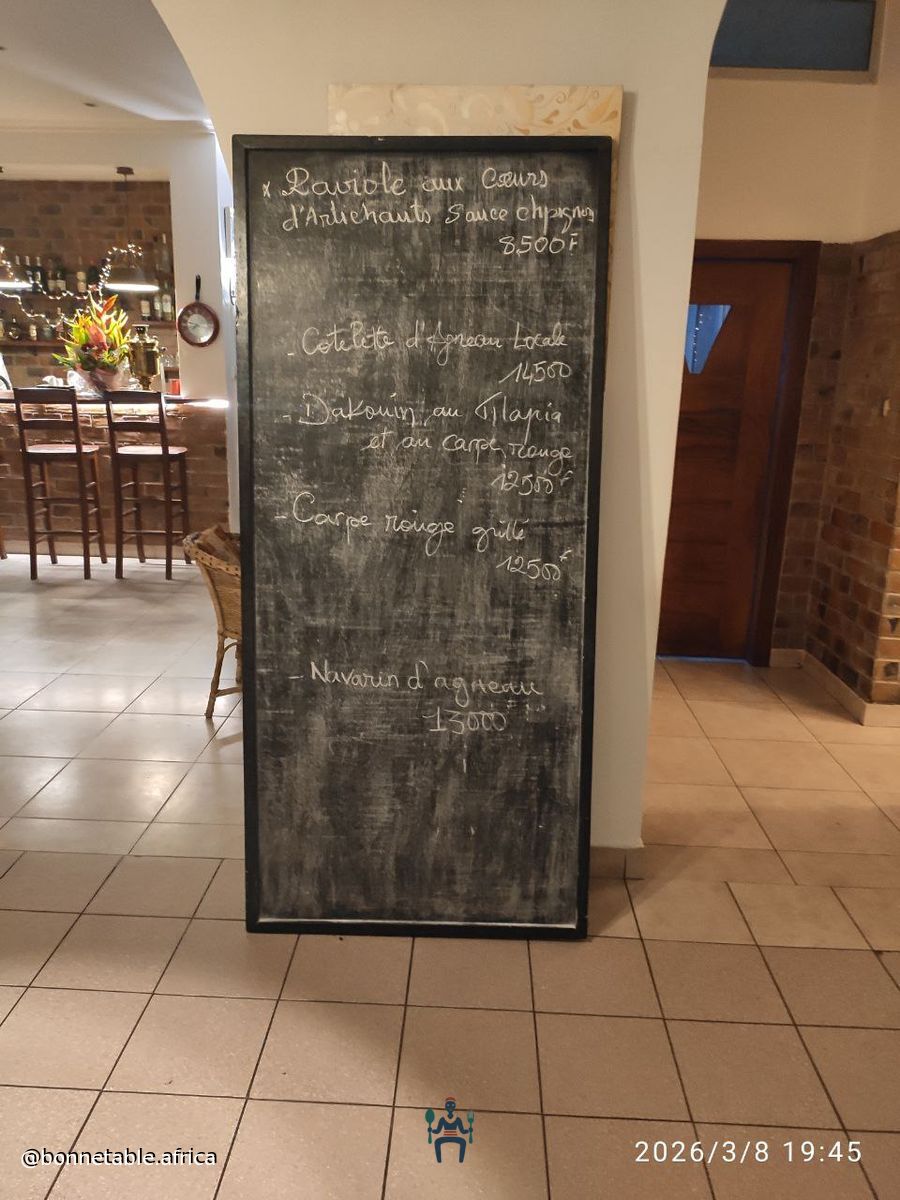 x Raviole aux Cœurs
d'Artichauts Sauce chpignon
8500F
- Cotelette d'Agneau Locale
14500
- Dakouin au Tilapia
et au carpe rouge
12500F
- Carpe rouge grillé
12500F
- Navarin d'agneau
13000F
@bonnetable.africa
2026/3/8 19:45